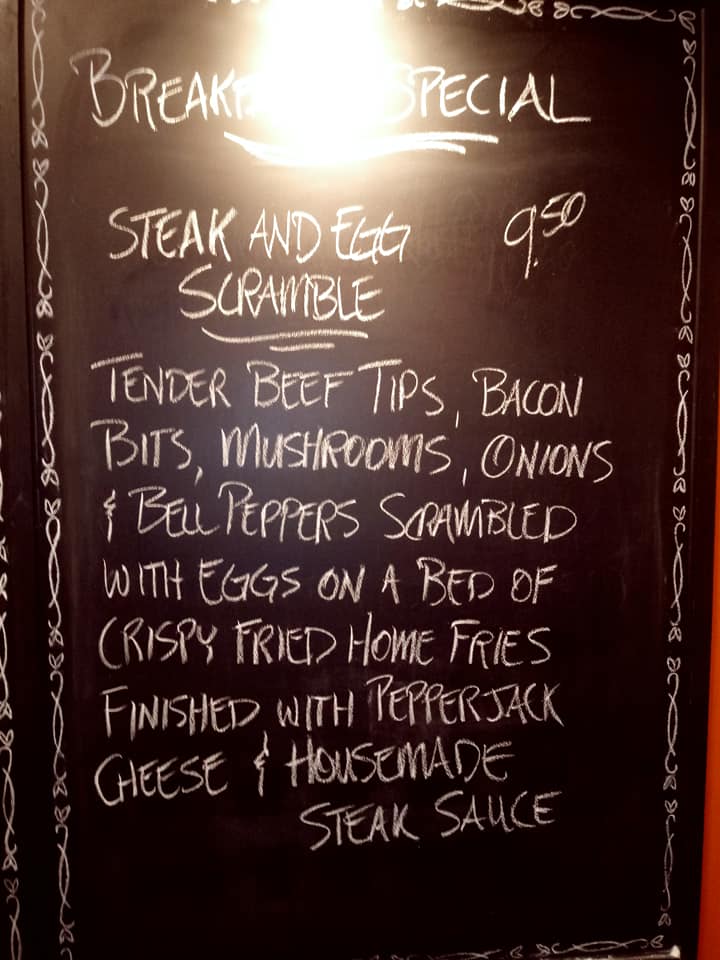 BREAKFAST SPECIAL
STEAK AND EGG 9.50
SCRAMBLE
TENDER BEEF TIPS, BACON
BITS, MUSHROOMS, ONIONS
& BELL PEPPERS SCRAMBLED
WITH EGGS ON A BED OF
CRISPY FRIED HOME FRIES
FINISHED WITH PEPPERJACK
CHEESE & HOUSEMADE
STEAK SAUCE